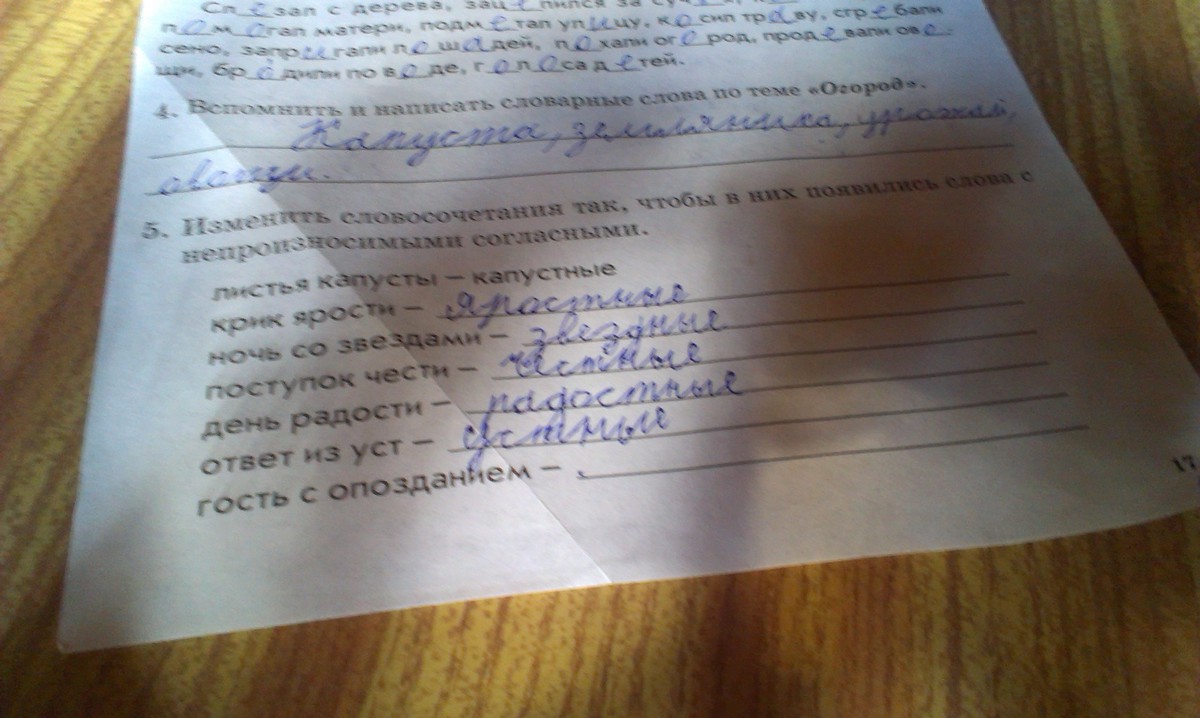 Сл е зал с дерева, зац е пился за
п о м о гал матери, подм е тал ул и цу, к о сил тр а ву, сгр е бали
сено, запр и гали л о ш а дей, п о хали ог о род, прод е вали ов о
щи, бр о дили по в о де, г о л о са д е тей.
4. Вспомнить и написать словарные слова по теме «Огород».
Капуста, земляника, урожай,
овощи.
5. Изменить словосочетания так, чтобы в них появились слова с
непроизносимыми согласными.
листья капусты – капустные
крик ярости – яростные
ночь со звездами – звездные
поступок чести – честные
день радости – радостные
ответ из уст – устные
гость с опозданием –
17